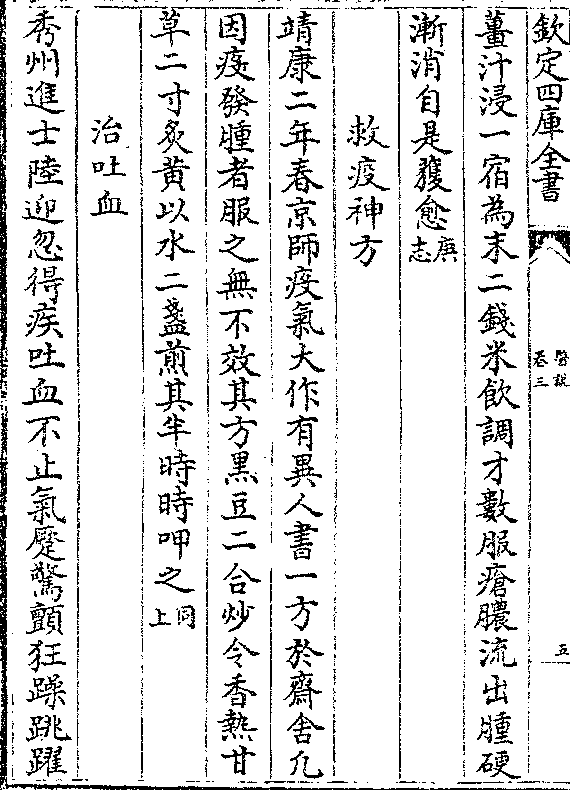 欽定四庫全書
醫說
卷三
五
薑汁浸一宿為末二錢米飲調才數服瘡膿流出腫硬
漸消自是獲愈庚志
救疫神方
靖康二年春京師疫氣大作有異人書一方於齋舍凡
因疫發腫者服之無不效其方黑豆二合炒令香熱甘
草二寸炙黄以水二盞煎其半時時呷之同上
治吐血
秀州進士陸迎忽得疾吐血不止氣蹙驚顫狂躁跳躍